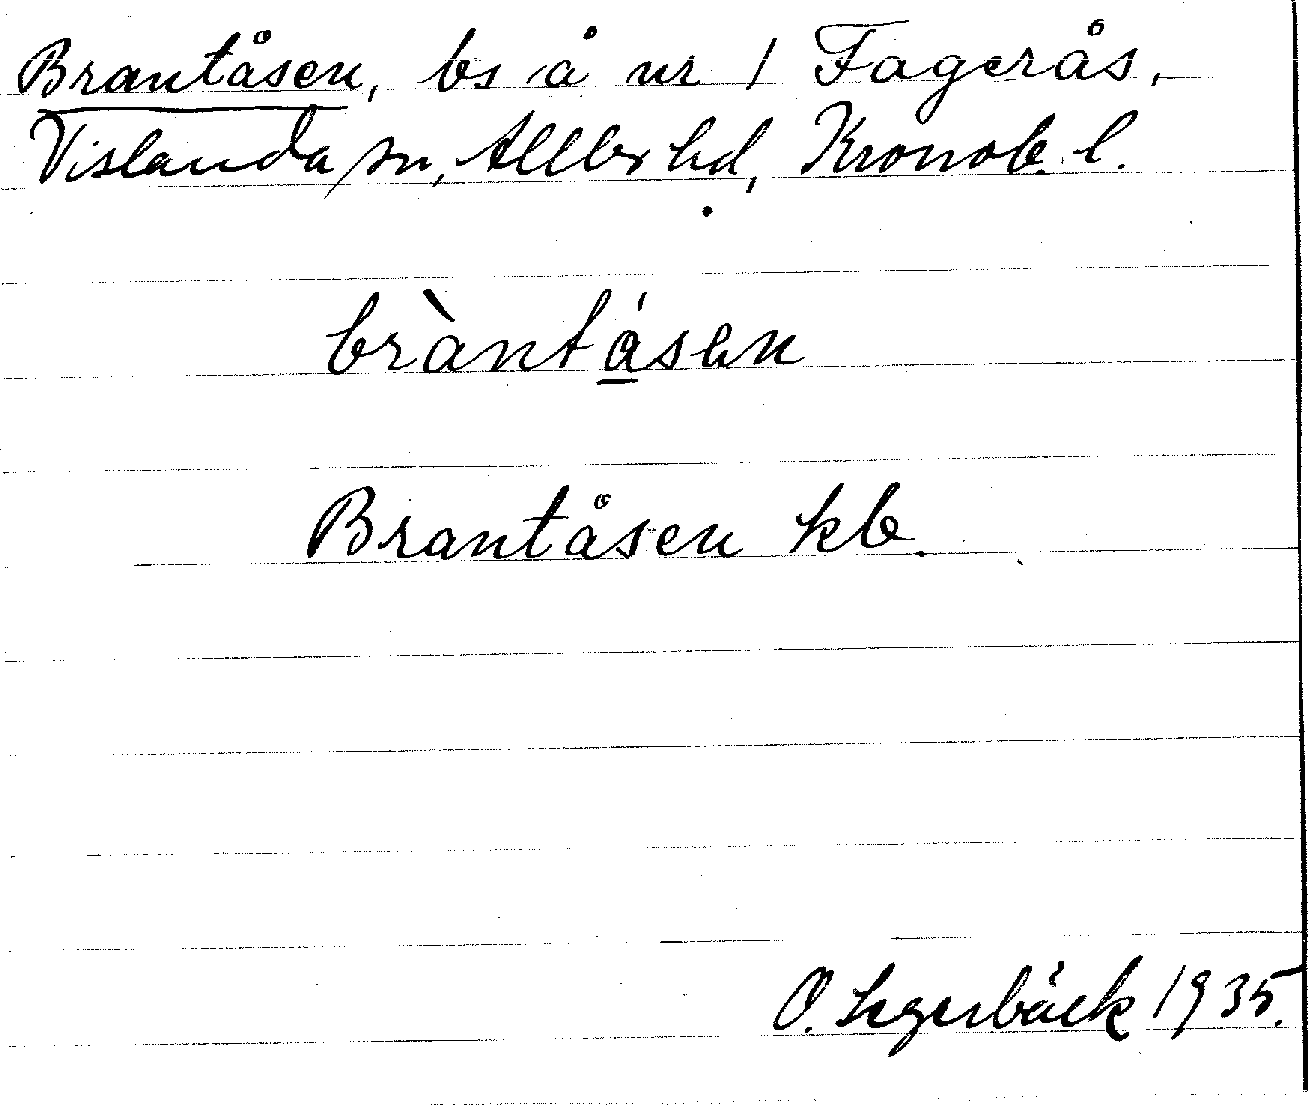 Brantåsen, bs å nr 1 Fagerås,
Vislanda sn, Allbo hd, Kronob. l.
bràntásen
Brantåsen kb.
O. Legerbäck 1935.